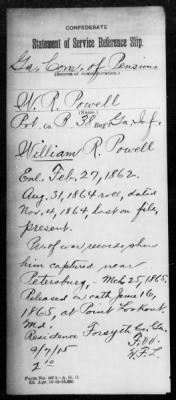 CONFEDERATE
Statement of Service Reference Slip.
Ga. Com. of Pensions
(Source of communication.)
W. R. Powell
(Name.)
Pvt. Co. B. 38 Reg. Ga. Inf.
William R. Powell
Enl. Feb. 27, 1862.
Aug. 31, 1864 roll, dated
Nov. 4, 1864, last on file,
present.
Per of war records, show
him captured near
Petersburg, Mch 25, 1865.
Released on oath June 16,
1865, at Point Lookout,
Md.
Residence Forsyth Co. Ga.
9/7/15